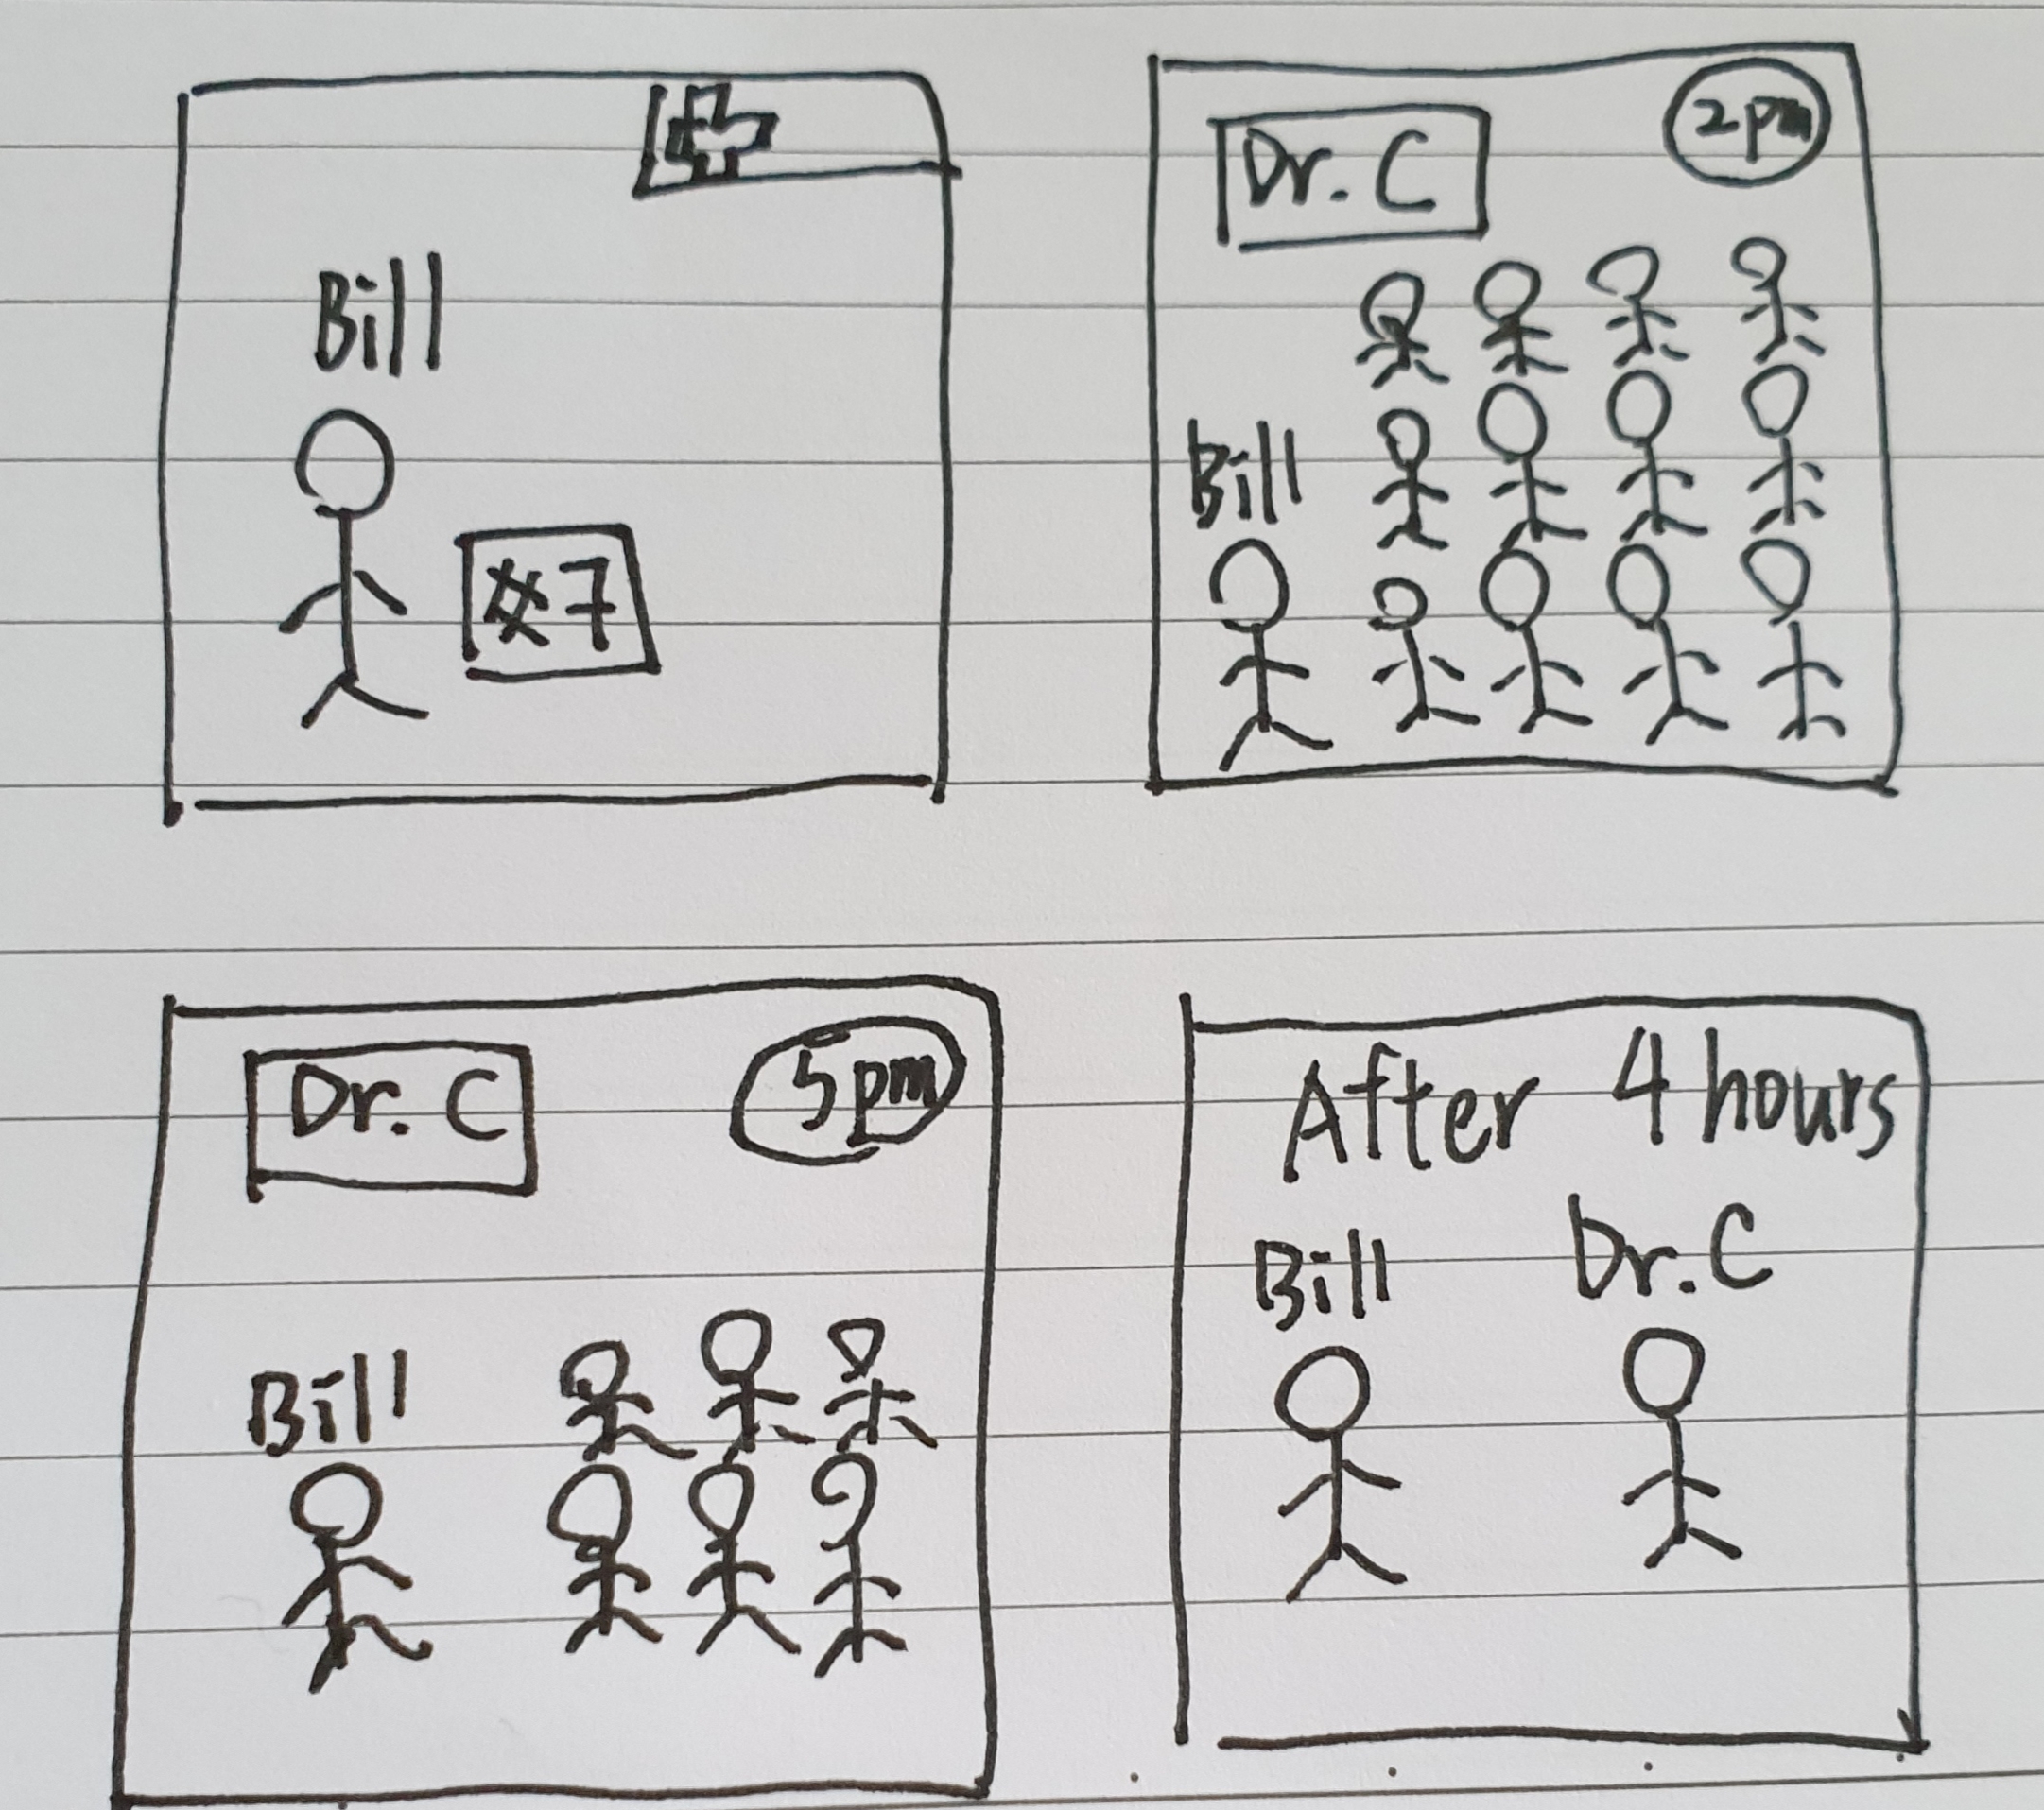 Bill
#7
Dr. C
2pm
Bill
Dr. C
5pm
Bill
After 4 hours
Bill
Dr. C